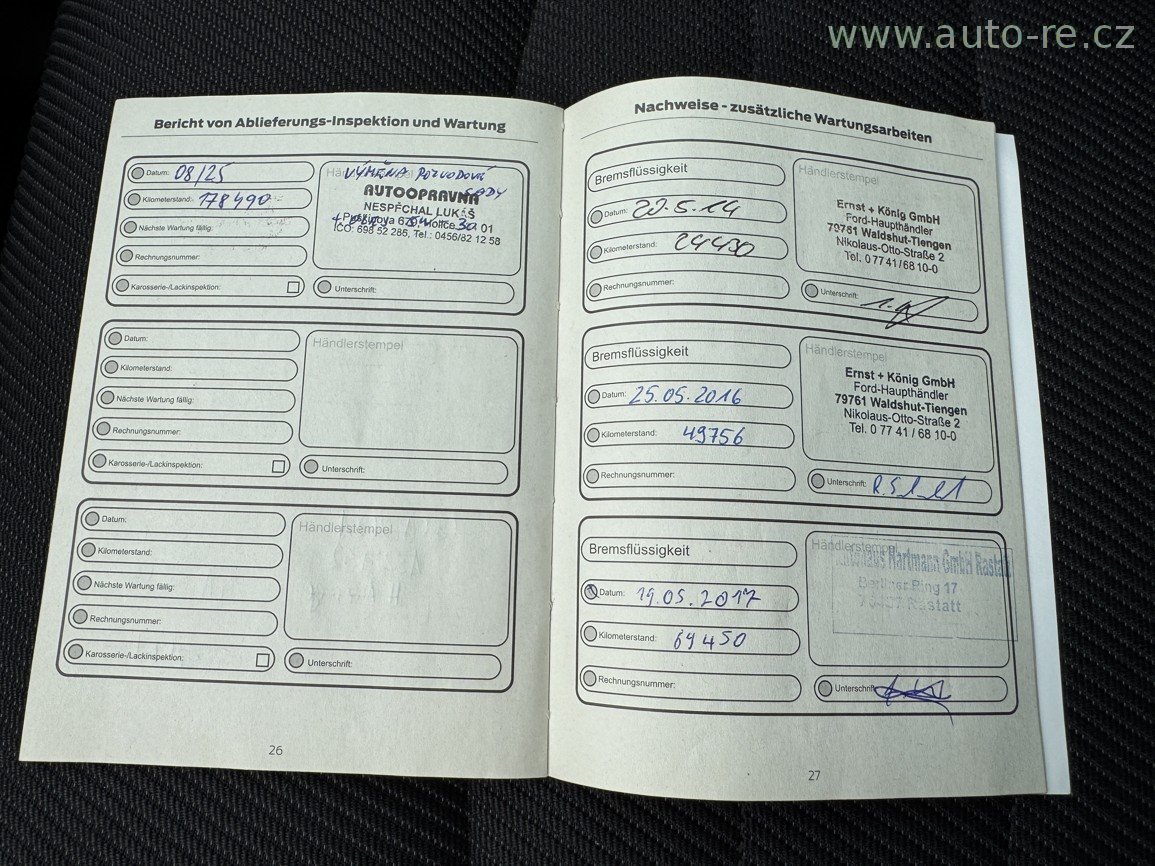 www.auto-re.cz
Bericht von Ablieferungs-Inspektion und Wartung
Datum: 08/25
Kilometerstand: 178490
Nächste Wartung fällig:
Rechnungsnummer:
Karosserie-/Lackinspektion:
VÝMĚNA ROZVODOVÉ
SADY
AUTOOPRAVNA
NESPĚCHAL LUKÁŠ
Puškinova Holice 01
IČO: 698 52 285, Tel.: 0456/82 12 58
Unterschrift:
Datum:
Kilometerstand:
Nächste Wartung fällig:
Rechnungsnummer:
Karosserie-/Lackinspektion:
Händlerstempel
Unterschrift:
Datum:
Kilometerstand:
Nächste Wartung fällig:
Rechnungsnummer:
Karosserie-/Lackinspektion:
Händlerstempel
Unterschrift:
26
Nachweise - zusätzliche Wartungsarbeiten
Bremsflüssigkeit
Datum: 22.5.14
Kilometerstand: 24430
Rechnungsnummer:
Händlerstempel
Ernst + König GmbH
Ford-Haupthändler
79761 Waldshut-Tiengen
Nikolaus-Otto-Straße 2
Tel. 0 77 41 / 68 10-0
Unterschrift:
Bremsflüssigkeit
Datum: 25.05.2016
Kilometerstand: 49756
Rechnungsnummer:
Händlerstempel
Ernst + König GmbH
Ford-Haupthändler
79761 Waldshut-Tiengen
Nikolaus-Otto-Straße 2
Tel. 0 77 41 / 68 10-0
Unterschrift:
Bremsflüssigkeit
Datum: 19.05.2017
Kilometerstand: 69450
Rechnungsnummer:
Händlerstempel
Hartmann GmbH Rastatt
Berliner Ring 17
Rastatt
Unterschrift:
27